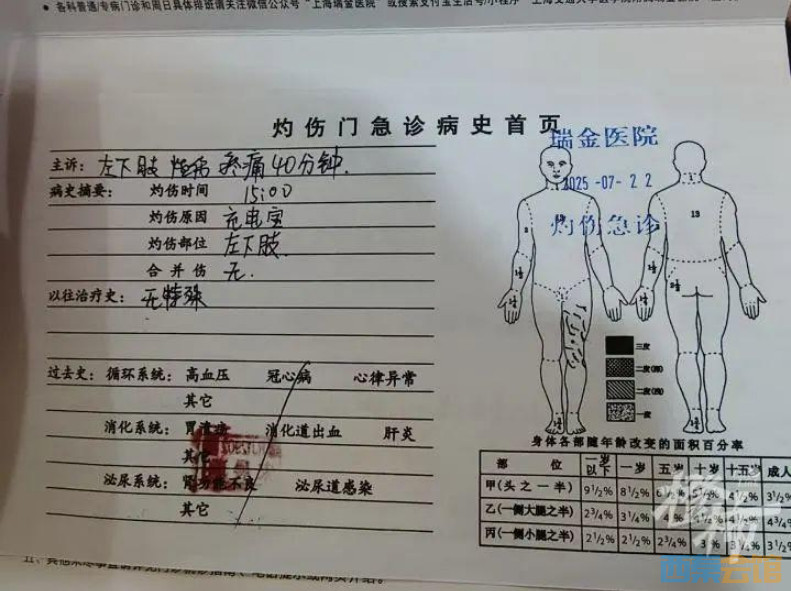 各科普通/专病门诊和周日具体排班请关注微信公众号“上海瑞金医院”或搜索支付宝生活号/小程序
灼伤门急诊病史首页
瑞金医院
2025-07-22
灼伤急诊
主诉：左下肢 疼痛40分钟.
病史摘要： 灼伤时间 15:00
灼伤原因 充电宝
灼伤部位 左下肢.
合并伤 无.
以往治疗史：无特殊
过去史：循环系统：高血压 冠心病 心律异常
其它
消化系统：胃溃疡 消化道出血 肝炎
其它
泌尿系统：肾功能不良 泌尿道感染
其它
13
1½
1½
1½
1½
三度
二度(深)
二度(浅)
一度
身体各部随年龄改变的面积百分率
部 位 一岁以下 一岁 五岁 十岁 十五岁 成人
甲(头之一半) 9½% 8½% 4½% 3½%
乙(一侧大腿之半) 2¾% 3¼% 4½% 4¾%
丙(一侧小腿之半) 2½% 2½% 2¾% 3% 3¼% 3½%